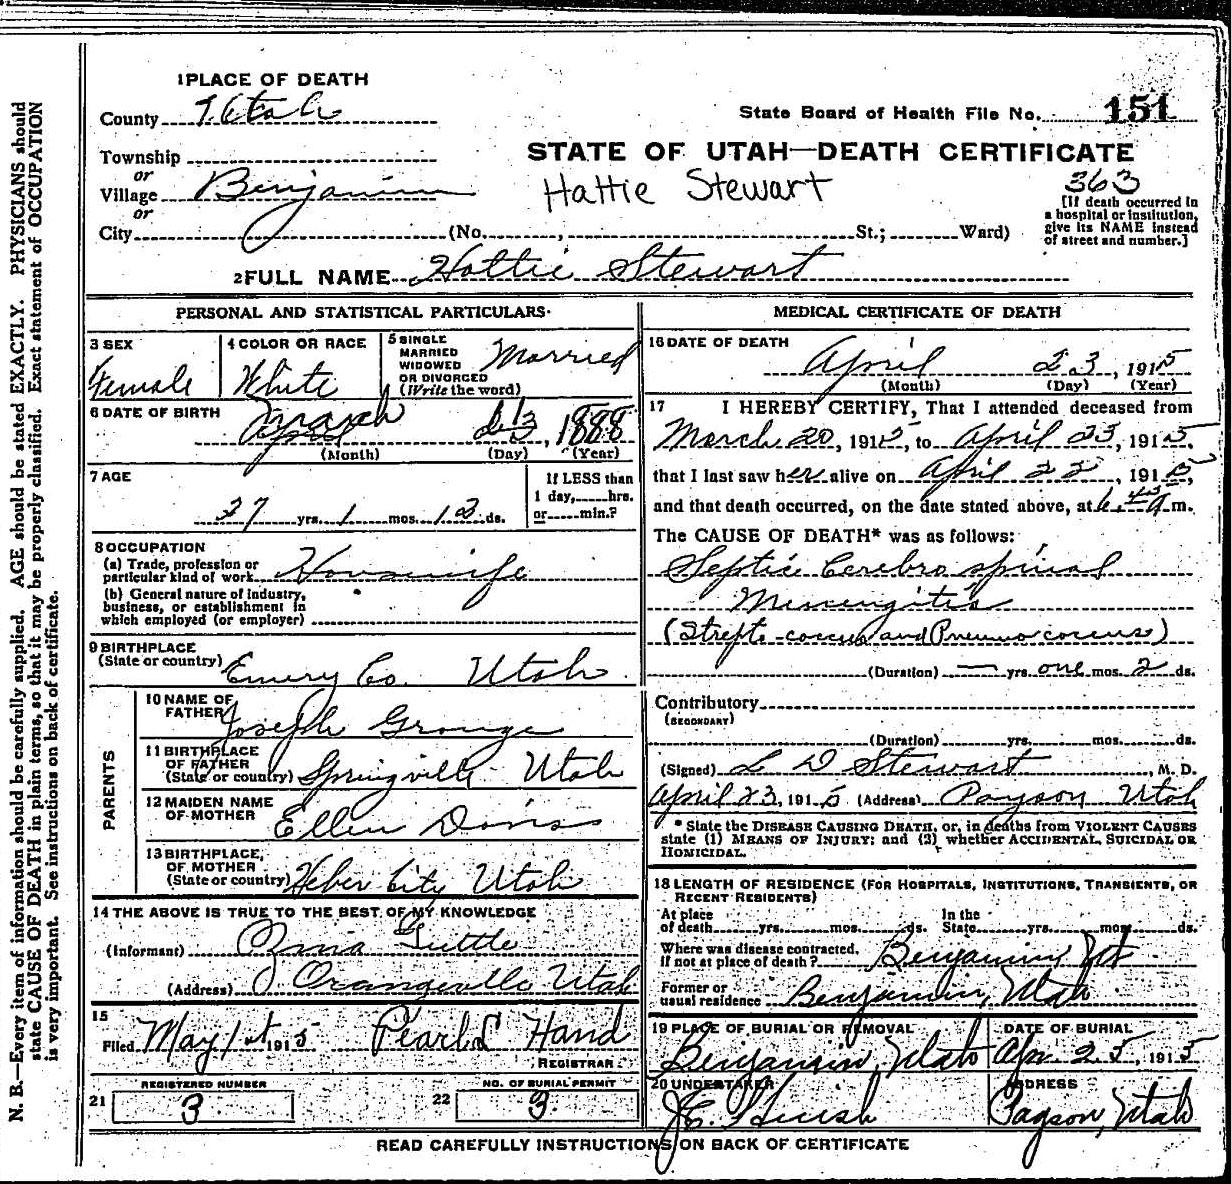 1 PLACE OF DEATH
County Utah
State Board of Health File No. 151
Township
or
Village Benjamin
or
City (No. , St.; Ward)
STATE OF UTAH—DEATH CERTIFICATE
Hattie Stewart
363
[If death occurred in a hospital or institution, give its NAME instead of street and number.]
2 FULL NAME Hattie Stewart
PERSONAL AND STATISTICAL PARTICULARS.
3 SEX
Female
4 COLOR OR RACE
White
5 SINGLE
MARRIED
WIDOWED
OR DIVORCED
(Write the word)
Married
6 DATE OF BIRTH
March 13, 1888
(Month) (Day) (Year)
7 AGE
27 yrs. 1 mos. ds.
If LESS than
1 day, hrs.
or min.?
8 OCCUPATION
(a) Trade, profession or
particular kind of work Housewife
(b) General nature of industry,
business, or establishment in
which employed (or employer)
9 BIRTHPLACE
(State or country) Emery Co. Utah
PARENTS
10 NAME OF
FATHER Joseph Grange
11 BIRTHPLACE
OF FATHER
(State or country) Springville Utah
12 MAIDEN NAME
OF MOTHER Ellen Davis
13 BIRTHPLACE,
OF MOTHER
(State or country) Heber City Utah
14 THE ABOVE IS TRUE TO THE BEST OF MY KNOWLEDGE
(Informant) Tuttle
(Address) Orangeville Utah
15
Filed May 1st 1915 Pearl L Hand
REGISTRAR
REGISTERED NUMBER
21 3
NO. OF BURIAL PERMIT
22 3
MEDICAL CERTIFICATE OF DEATH
16 DATE OF DEATH
April 23, 1915
(Month) (Day) (Year)
17 I HEREBY CERTIFY, That I attended deceased from
March 20, 1915, to April 23, 1915,
that I last saw her alive on April 22, 1915,
and that death occurred, on the date stated above, at 6.45 a m.
The CAUSE OF DEATH* was as follows:
Septic Cerebro spinal
Meningitis
(Strepto-coccus and Pneumo coccus)
(Duration) — yrs. one mos. 2 ds.
Contributory
(SECONDARY)
(Duration) yrs. mos. ds.
(Signed) L D Stewart, M. D.
April 23, 1915 (Address) Payson Utah
* State the DISEASE CAUSING DEATH, or, in deaths from VIOLENT CAUSES
state (1) MEANS OF INJURY; and (2) whether ACCIDENTAL, SUICIDAL OR
HOMICIDAL.
18 LENGTH OF RESIDENCE (FOR HOSPITALS, INSTITUTIONS, TRANSIENTS, OR
RECENT RESIDENTS)
At place
of death yrs. mos. ds. In the
State yrs. mos. ds.
Where was disease contracted,
if not at place of death? Benjamin Ut
Former or
usual residence Benjamin, Utah
19 PLACE OF BURIAL OR REMOVAL
Benjamin, Utah
DATE OF BURIAL
Apr. 25, 1915
20 UNDERTAKER
ADDRESS
Payson, Utah
READ CAREFULLY INSTRUCTIONS ON BACK OF CERTIFICATE
N. B.—Every item of information should be carefully supplied. AGE should be stated EXACTLY. PHYSICIANS should
state CAUSE OF DEATH in plain terms, so that it may be properly classified. Exact statement of OCCUPATION
is very important. See instructions on back of certificate.